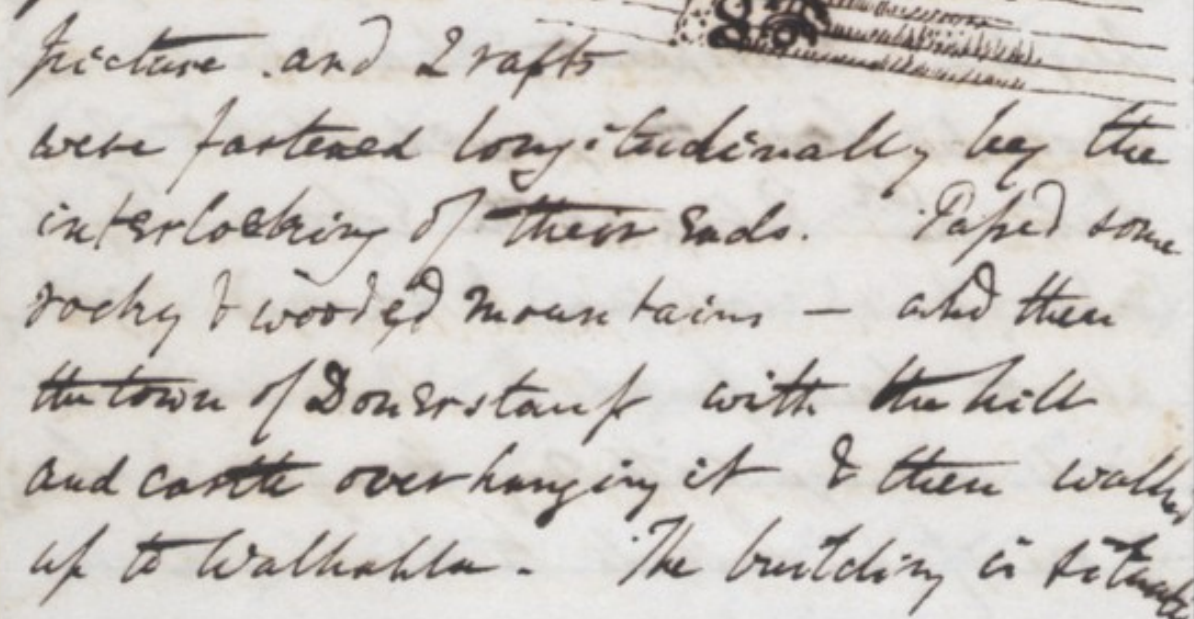 picture . and 2 rafts
were fastened longitudinally by the
interlocking of their ends. Paſsed some
rocky & wooded mountains — and then
the town of Donerstauf with the hill
and castle overhanging it & then walked
up to Walhahla. The building is situate